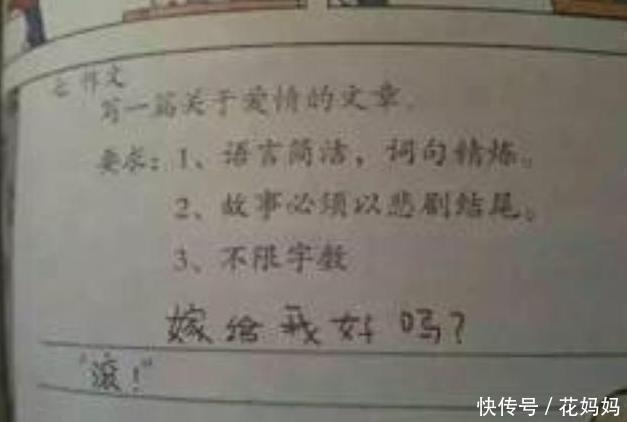 七 作文
写一篇关于爱情的文章.
要求：1、语言简洁，词句精炼。
2、故事必须以悲剧结尾。
3、不限字数
嫁给我好吗?
"滚!"
快传号 / 花妈妈